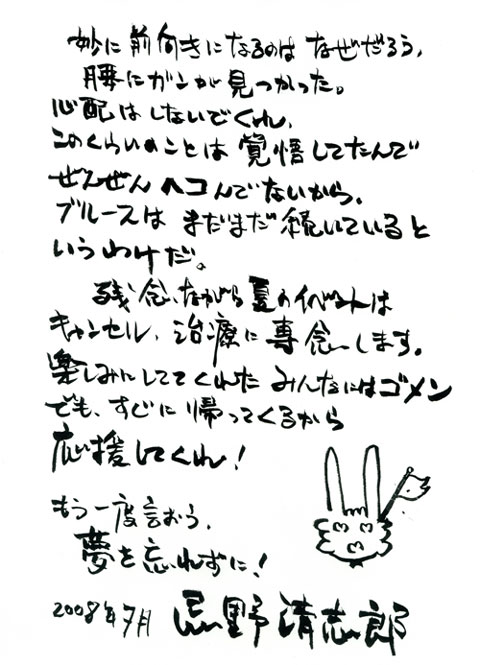 妙に前向きになるのはなぜだろう。
腰にガンが見つかった。
心配はしないでくれ、
このくらいのことは覚悟してたんで
ぜんぜんヘコんでないから。
ブルースはまだまだ続いていると
いうわけだ。
残念ながら夏のイベントは
キャンセル、治療に専念します。
楽しみにしててくれたみんなにはゴメン
でも、すぐに帰ってくるから
応援してくれ!
もう一度言おう。
夢を忘れずに!
2008年7月 忌野清志郎